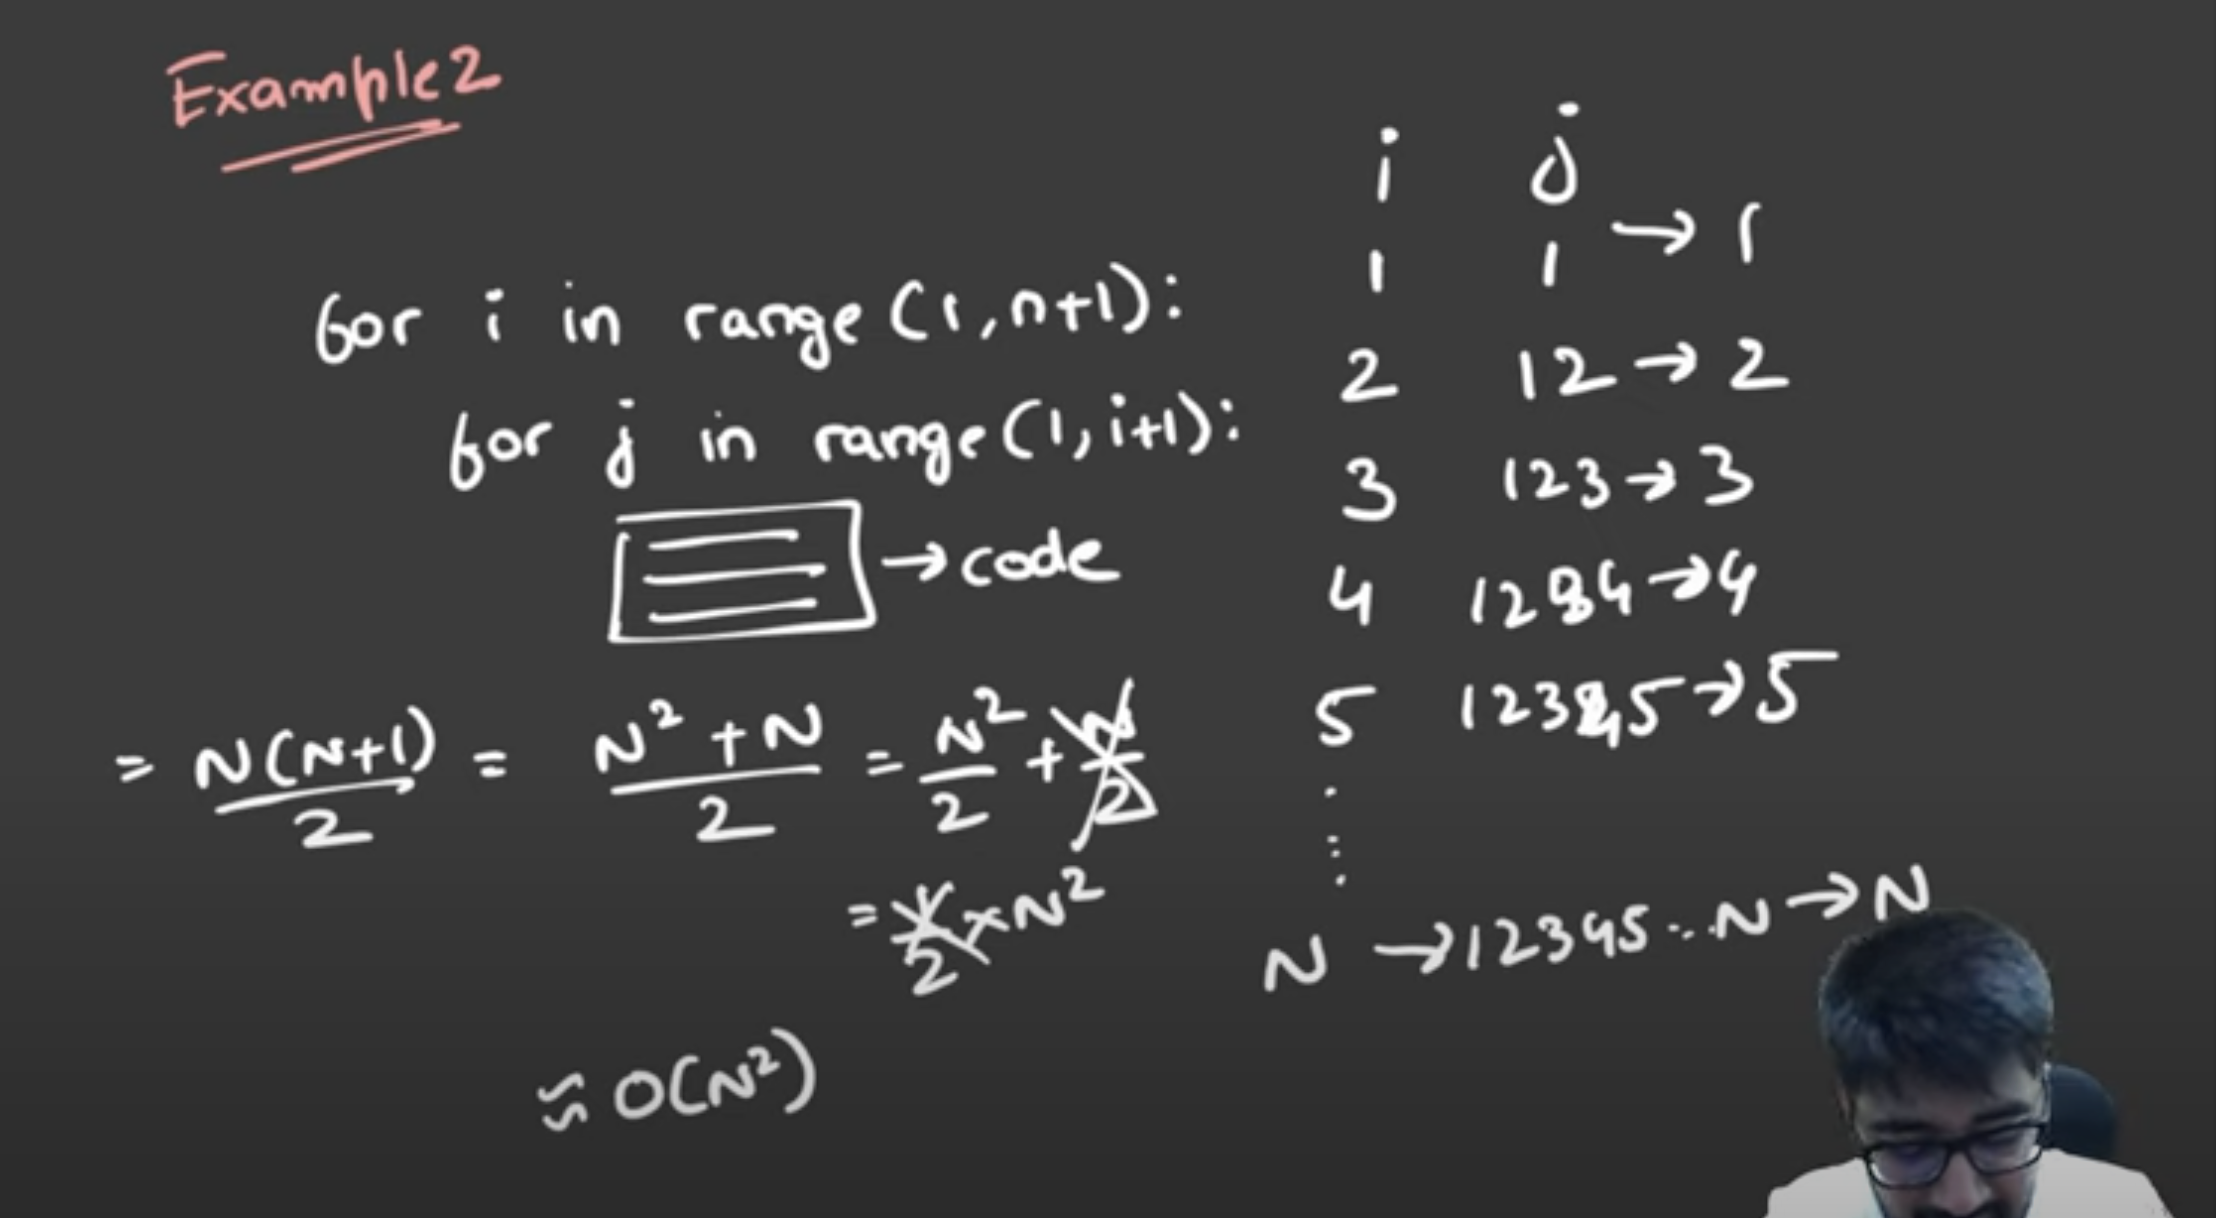 Example 2
for i in range (1, n+1):
for j in range (1, i+1):
→ code
= N(N+1)/2 = N² + N/2 = N²/2 + N/2
= 1/2 × N²
≈ O(N²)
i j
1 1 → 1
2 12 → 2
3 123 → 3
4 1234 → 4
5 12345 → 5
N → 12345...N → N